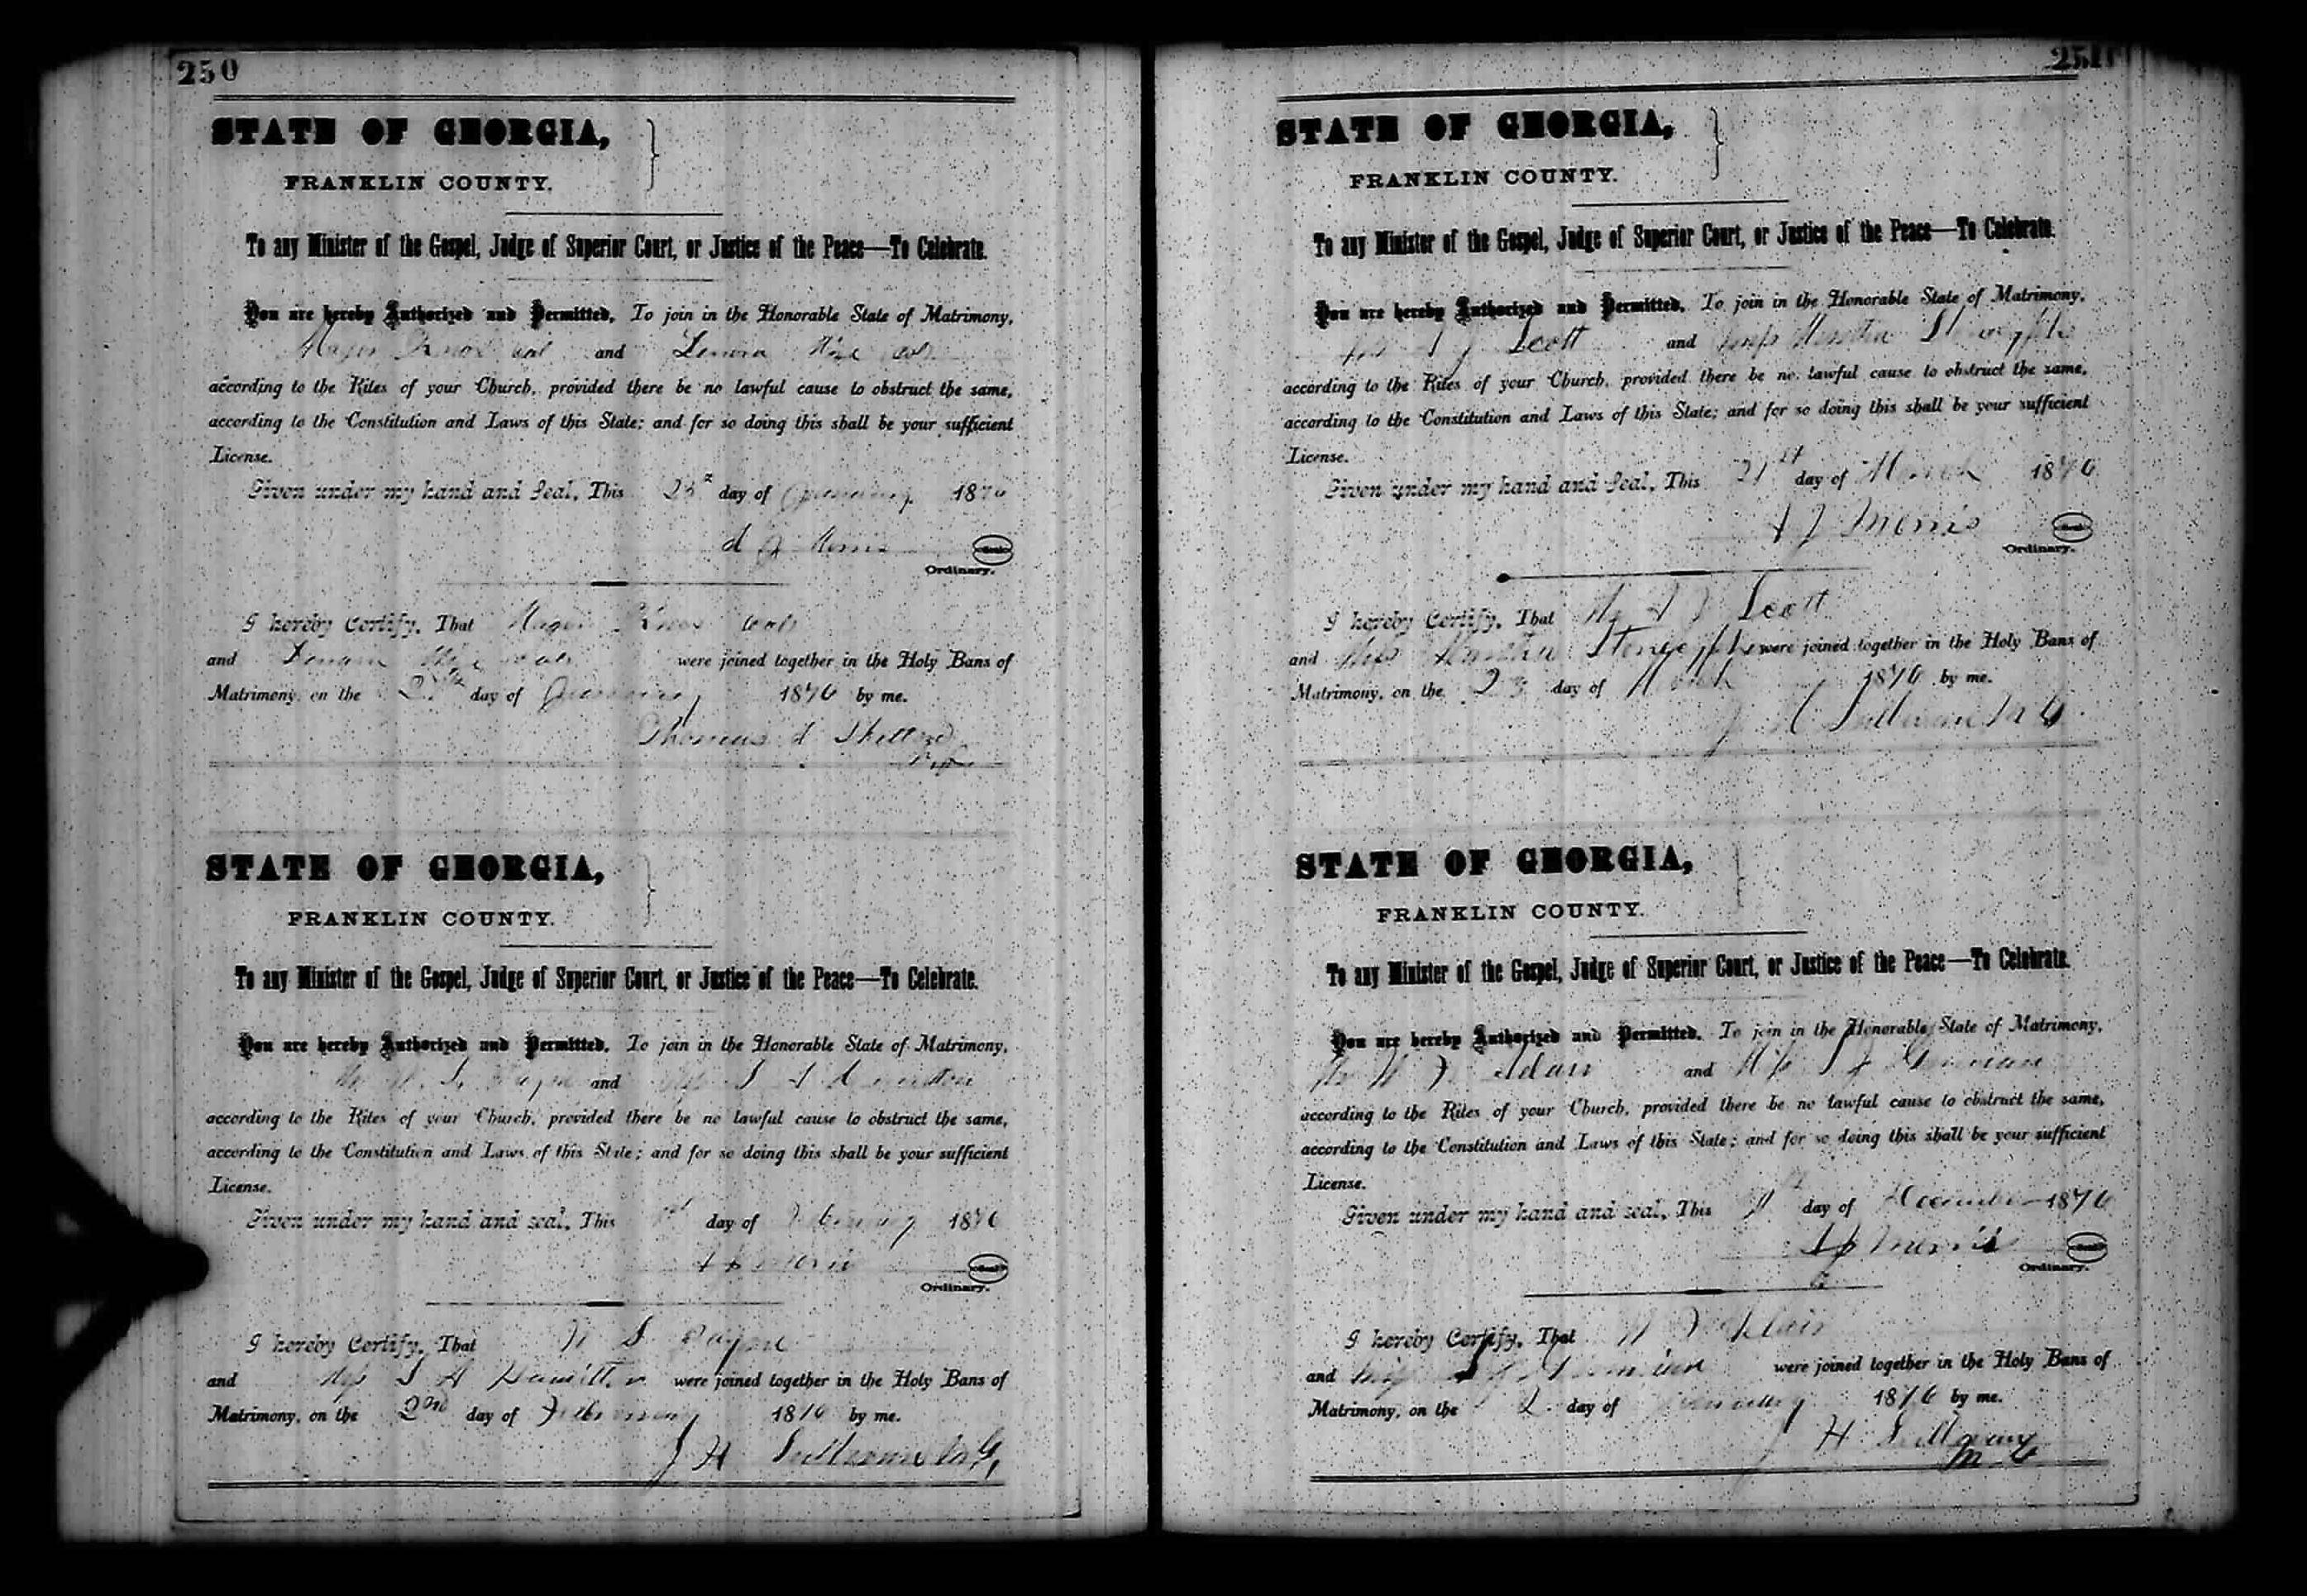 250
STATE OF GEORGIA,
FRANKLIN COUNTY.
To any Minister of the Gospel, Judge of Superior Court, or Justice of the Peace—To Celebrate.
You are hereby Authorized and Permitted, To join in the Honorable State of Matrimony,
Knox col and
according to the Rites of your Church, provided there be no lawful cause to obstruct the same,
according to the Constitution and Laws of this State; and for so doing this shall be your sufficient
License.
Given under my hand and Seal, This day of January 1876
Morris Seal
Ordinary.
I hereby Certify, That Knox
and were joined together in the Holy Bans of
Matrimony, on the day of January 1876 by me.
Thomas
STATE OF GEORGIA,
FRANKLIN COUNTY.
To any Minister of the Gospel, Judge of Superior Court, or Justice of the Peace—To Celebrate.
You are hereby Authorized and Permitted, To join in the Honorable State of Matrimony,
and
according to the Rites of your Church, provided there be no lawful cause to obstruct the same,
according to the Constitution and Laws of this State; and for so doing this shall be your sufficient
License.
Given under my hand and seal, This day of February 1876
Morris Seal
Ordinary.
I hereby Certify, That S Payne
and Miss S A Hamilton were joined together in the Holy Bans of
Matrimony, on the 2nd day of February 1876 by me.
J H Sullivan M G,
251
STATE OF GEORGIA,
FRANKLIN COUNTY.
To any Minister of the Gospel, Judge of Superior Court, or Justice of the Peace—To Celebrate.
You are hereby Authorized and Permitted, To join in the Honorable State of Matrimony,
Scott and Miss Martha
according to the Rites of your Church, provided there be no lawful cause to obstruct the same,
according to the Constitution and Laws of this State; and for so doing this shall be your sufficient
License.
Given under my hand and Seal, This 21st day of March 1876
Morris Seal
Ordinary.
I hereby Certify, That Mr Scott
and Miss Martha were joined together in the Holy Bans of
Matrimony, on the 23 day of March 1876 by me.
J H Sullivan M G
STATE OF GEORGIA,
FRANKLIN COUNTY.
To any Minister of the Gospel, Judge of Superior Court, or Justice of the Peace—To Celebrate.
You are hereby Authorized and Permitted, To join in the Honorable State of Matrimony,
Adair and Miss
according to the Rites of your Church, provided there be no lawful cause to obstruct the same,
according to the Constitution and Laws of this State; and for so doing this shall be your sufficient
License.
Given under my hand and seal, This day of December 1876
Morris Seal
Ordinary.
I hereby Certify, That Adair
and Miss were joined together in the Holy Bans of
Matrimony, on the 2 day of January 1876 by me.
J H Sullivan
M G